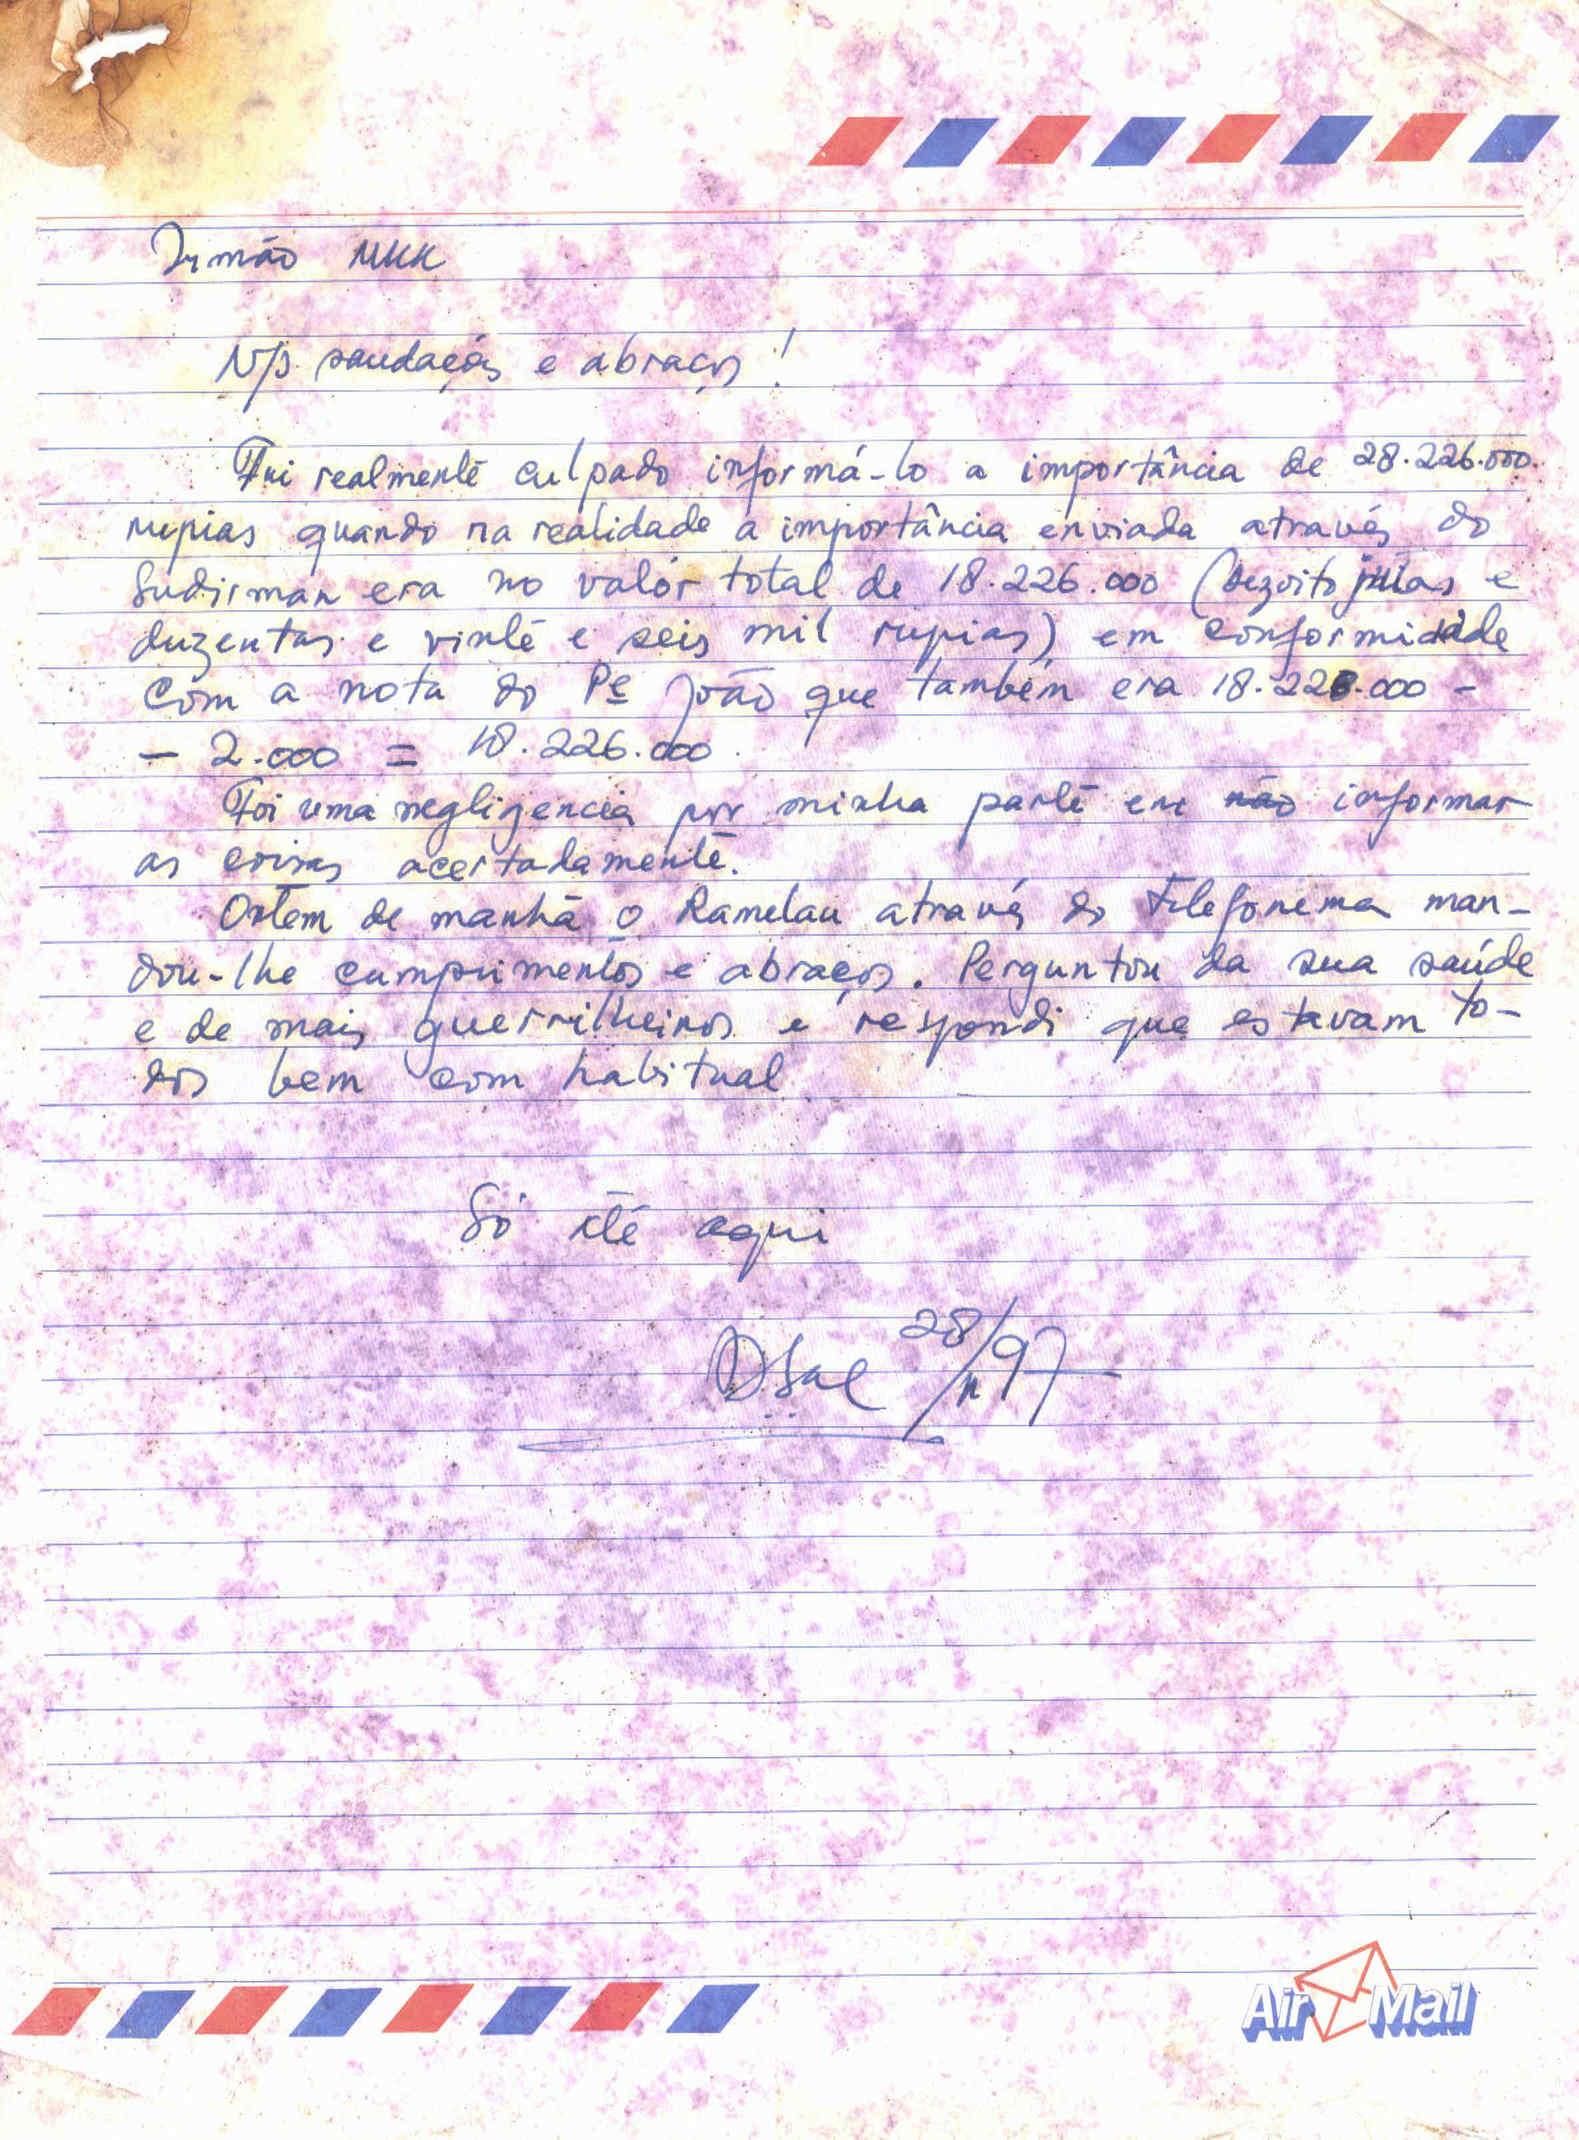 Irmão MKK
N/s. saudações e abraços!
Fui realmente culpado informá-lo a importância de 28.226.000.
rupias quando na realidade a importância enviada através do
Sudirman era no valor total de 18.226.000 (dezoito e
duzentas e vinte e seis mil rupias) em conformidade
com a nota do Pe João que também era 18.228.000 -
- 2.000 = 18.226.000.
Foi uma negligencia por minha parte em não informar
as coisas acertadamente.
Ontem de manhã o Ramelau através do telefonema man-
dou-lhe cumprimentos e abraços. Perguntou da sua saúde
e de mais guerrilheiros e respondi que estavam to-
dos bem com habitual
Só até aqui
28/11/97
Air Mail